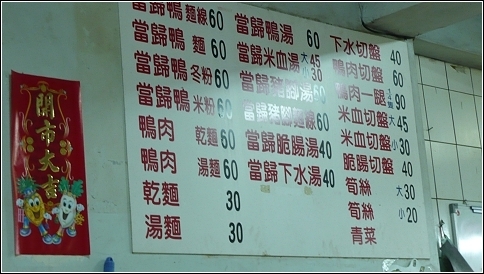 開市大吉
當歸鴨麵線60
當歸鴨 麵60
當歸鴨冬粉60
當歸鴨米粉60
鴨肉 乾麵60
鴨肉 湯麵60
乾麵 30
湯麵 30
當歸鴨湯 60
當歸米血湯大45小30
當歸豬腳湯60
當歸豬腳麵線60
當歸脆腸湯40
當歸下水湯40
下水切盤 40
鴨肉切盤 60
鴨肉一腿 90
米血切盤大45
米血切盤小30
脆腸切盤 40
筍絲 大30
筍絲 小20
青菜